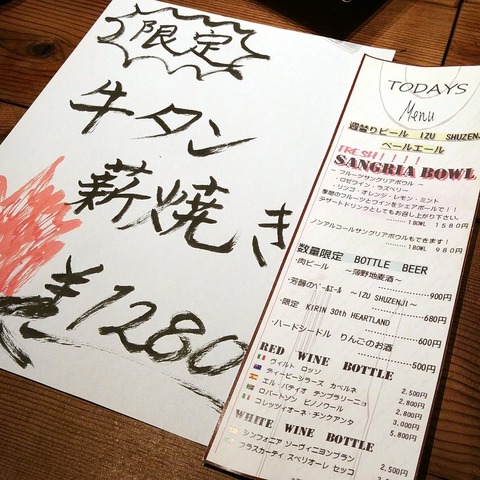 限定
牛タン
薪焼き
¥1280
TODAYS
Menu
週替りビール IZU SHUZENJI
ペールエール
FRESH!!!!
SANGRIA BOWL
～ フルーツサングリアボウル ～
ロゼワイン・ラズベリー
リンゴ・オレンジ・レモン・ミント
季節のフルーツとワインをシェアボールで!!
デザートドリンクとしてもお召し上がり下さい。
1BOWL 1580円
ノンアルコールサングリアボウルもできます!
1BOWL 980円
数量限定 BOTTLE BEER
・肉ビール ～薄野地麦酒～
900円
・芳醇のペールエール ～IZU SHUZENJI～
680円
・限定 KIRIN 30th HEARTLAND
600円
・ハードシードル りんごのお酒
500円
RED WINE BOTTLE
ヴィルト ロッソ 2,500円
ティーピーシラーズ カベルネ 2,800円
エル・パティオ テンプラリーニョ 2,800円
ロバートソン ピノノワール 3,000円
コレッツィオーネ・チンクアンタ 5,800円
WHITE WINE BOTTLE
シンフォニア ソーヴィニヨンブラン 2,500円
フラスカーティ スペリオーレ セッコ